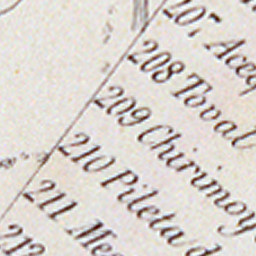 207 Aceq
208 Toval
209 Chirimoy
210 Pileta d
211 Me
212